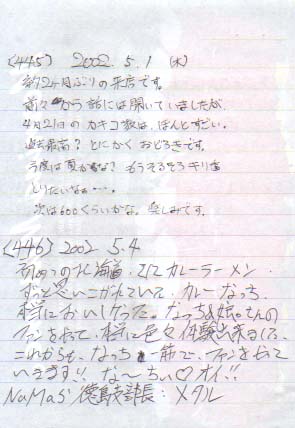 (445) 2002.5.1 (水)
約2ヶ月ぶりの来店です。
前々から話には聞いていましたが、
4月21日のカキコ数は、ほんとすごい。
過去最高？とにかくおどろきです。
今度は真かな？もうそろそろキリ番
とりたいなぁー。
次は600くらいかな。楽しみです。
(446) 2002.5.4
初めての北海道、カレーラーメン・
ずっと思いこがれていて、カレーなっち、
本当においしかった。なっち&姐さんの
ファンをやって、本当に色々体験出来ました
これからも、なっち一筋で、ファンをやって
いきます!! な〜ちぃ♡オイ!!
NaMas' 徳島支部長：メタル